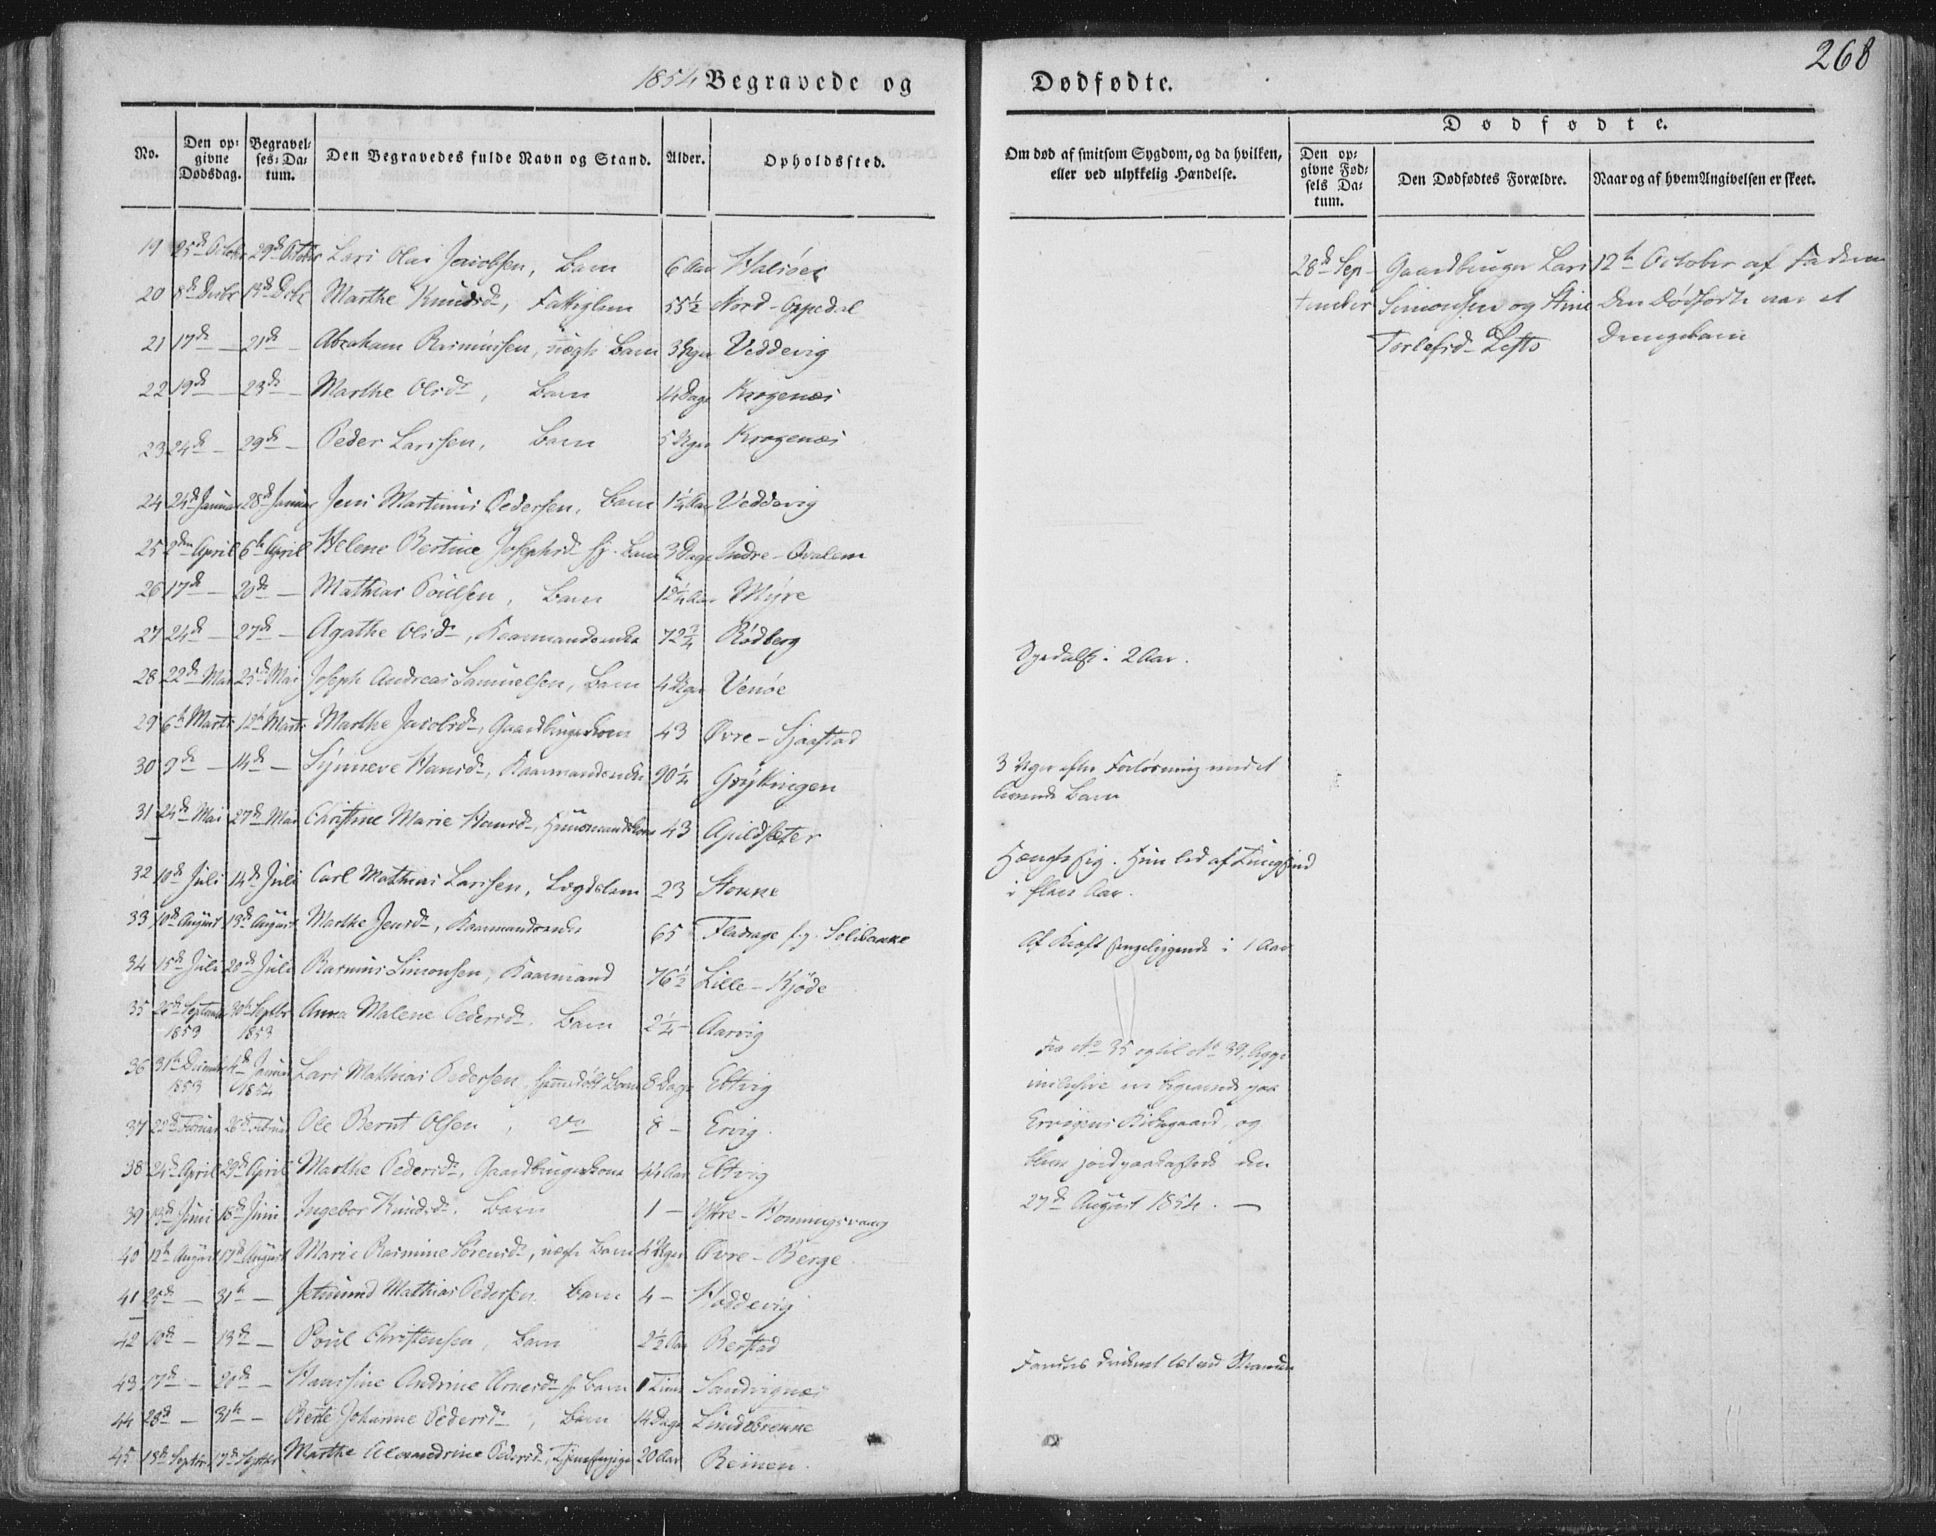 1854 Begravede og
Dødfødte.
268
No.
Den opgivne Dødsdag.
Begravelses-Datum.
Den Begravedes fulde Navn og Stand.
Alder.
Opholdssted.
Om død af smitsom Sygdom, og da hvilken, eller ved ulykkelig Hændelse.
Dødfødte.
Den opgivne Fødsels Datum.
Den Dødfødtes Forældre.
Naar og af hvem Angivelsen er skeet.
19 25de October 29de October Lars Olai Jacobsen, Barn 6 Aar Halsöer
20 8de Decbr 13de Decbr Marthe Knudsd., Fattiglem 55½ Nord-Oppedal
21 17de — 21de — Abraham Rasmussen, uægte Barn 3 Uger Veddevig
22 19de — 23de — Marthe Olsd., Barn 14 Dage Krogenæs
23 24de — 29de — Peder Larssen, Barn 5 Uger Krogenæs
24 24de Januar 28de Januar Jens Martinus Pedersen, Barn 1¼ Aar Veddevig
25 2den April 6te April Helene Bertine Josephsd. Barn 3 Dage Indre-Qvalem
26 17de — 20de — Mathias Poulsen, Barn 12¼ Aar Myre
27 24de — 27de — Agathe Olsd., Kaarmandsenke 72¾ Rödberg
28 22de Mai 25de Mai Joseph Andreas Samuelsen, Barn 4 Uger Venöe
29 6te Marts 12te Marts Marthe Jacobsd., Gaardbrugerkone 43 Øvre-Sjaastad
30 9de — 14de — Synneve Hansd., Kaarmandsenke 90¼ Gryttingen
31 24de Mai 27de Mai Christine Marie Hansd., Huusmandskone 43 Apildsæter
32 10de Juli 14de Juli Carl Mathias Larssen, Lægdslem 23 Stokke
33 10de August 13de August Marthe Jensd., Kaarmandsenke 65 Fladrage
34 15de Juli 20de Juli Rasmus Simonsen, Kaarmand 76½ Lille-Kjöde
35 26de September 1853 30te Septbr 1853 Anna Malene Pedersd. Barn 2¼ — Aarvig
36 31te December 1853 4de Januar 1854 Lars Mathias Pedersen, hjemdöbt Barn 8 Dage Ebtvig
37 22de Februar 26de Februar Ole Bernt Olsen, do 8 — Ervig
38 24de April 29de April Marthe Pedersd., Gaardbrugerkone 44 Aar Ebtvig
39 13de Juni 18de Juni Ingebor Knudsd. Barn 1 — Yttre-Honningsvaag
40 12te August 17de August Marie Rasmine Sörensd., uægte Barn 4 Uger Øvre-Berge
41 25de — 31te — Jetmund Mathias Pedersen Barn 4 — Hoddevig
42 10de — 13de — Poul Christensen, Barn 2½ Aar Berstad
43 17de — 20de — Hanssine Andrine Arnesd. Barn 1 Time Sandvignæs
44 28de — 31te — Berte Johanne Pedersd., Barn 14 Dage Lindebrekke
45 13de Septbr 17de Septbr Marthe Alexandrine Pedersd., Tjenestepige 20 Aar Reinen.
Spedalsk i 2 Aar.
3 Uger efter Forløsning med et
levende Barn
Hængte sig. Hun led af Tungsind
i flere Aar.
Af Kræft sengeliggende i 1 Aar
Fra No 35 og til No 39 begge
inclusive er begravede paa
Ervigens Kirkegaard, og
bleve jordpaakastede den
27de August 1854. —
Fandtes druknet tæt ved Stranden
28de September
Gaardbruger Lars
Simonsen og Stine
Torlefsd. Lefto
12te October af Faderen
Den Dødfødte var et
Drengebarn